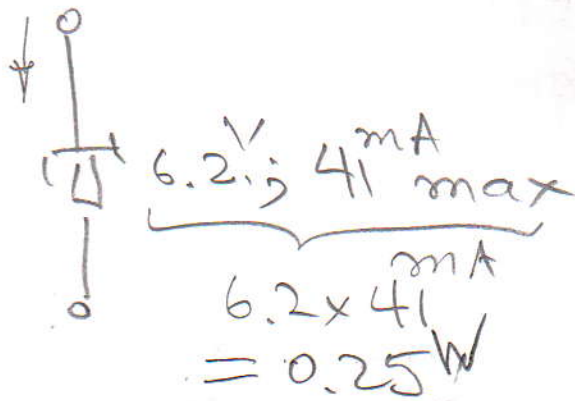 6.2V; 41mA max
6.2 x 41mA
= 0.25W